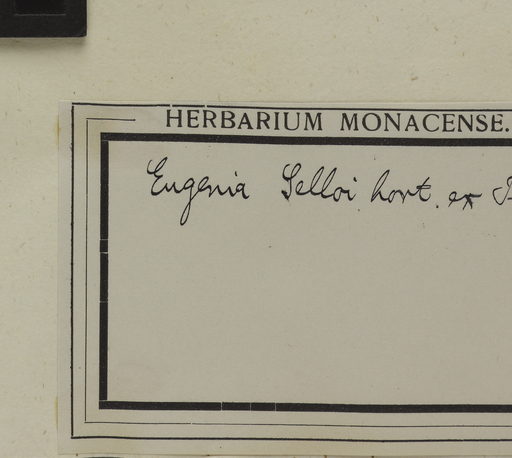 HERBARIUM MONACENSE.
Eugenia Selloi hort. ex